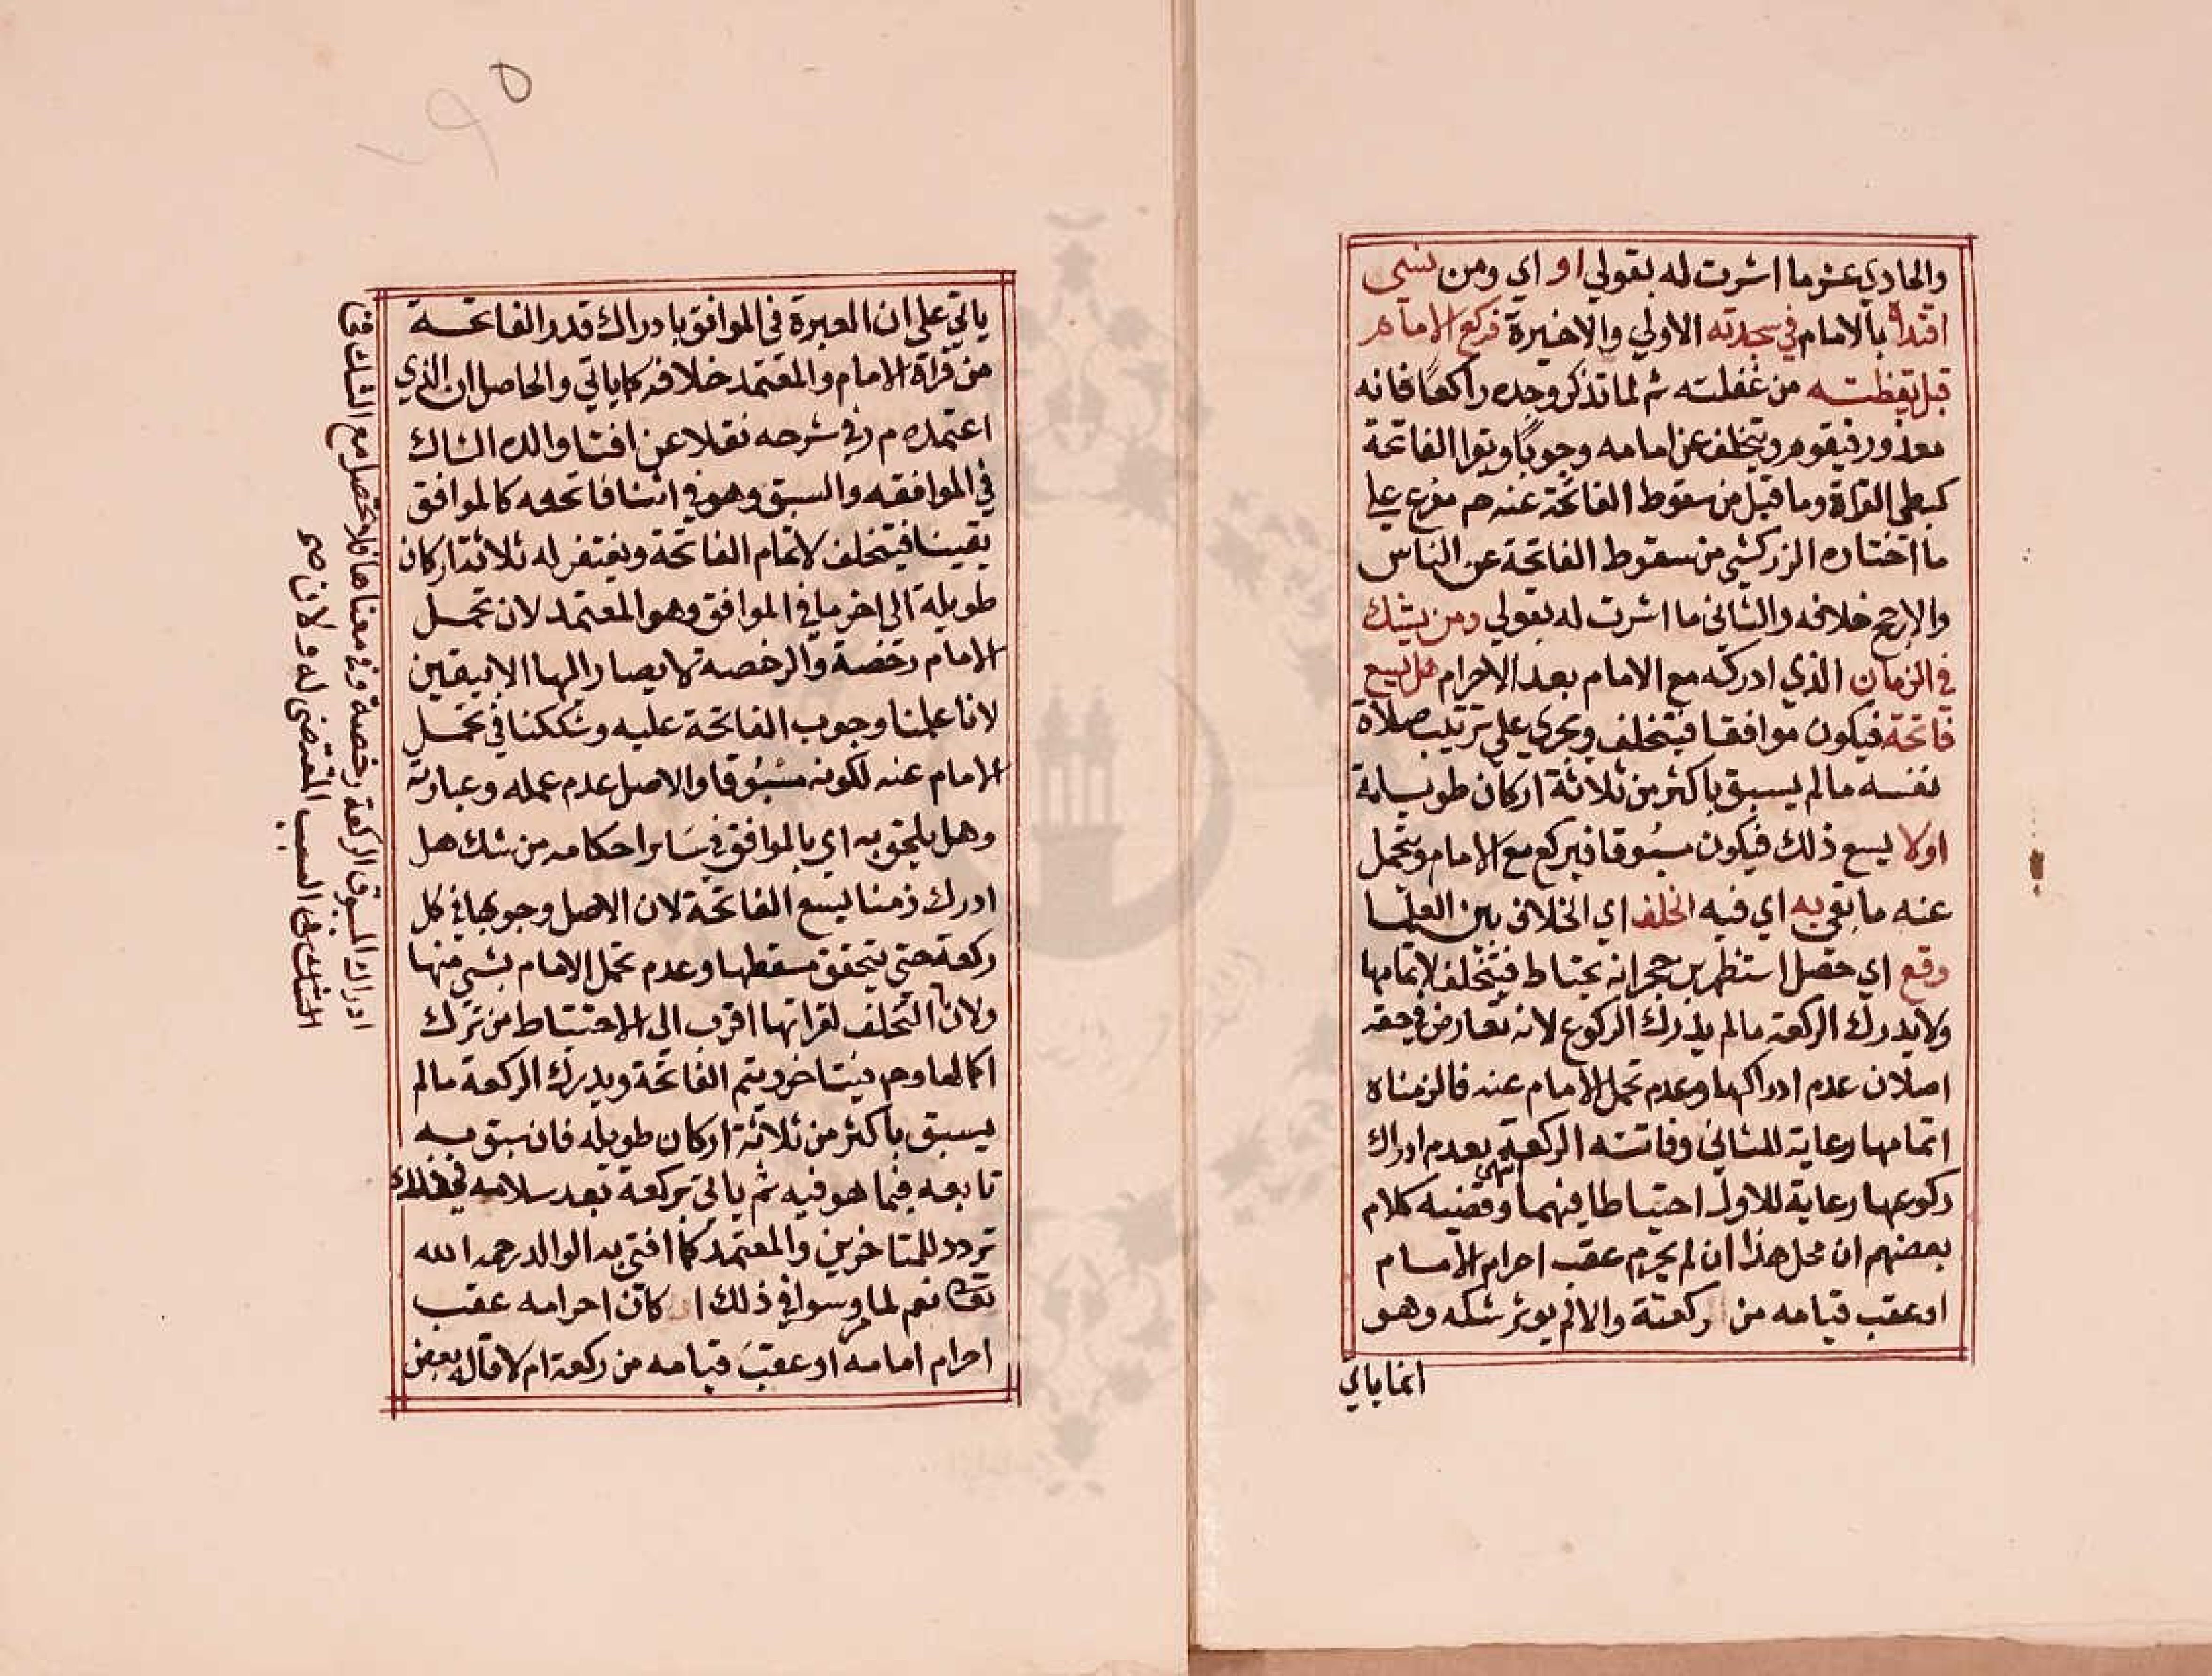 والحادي عشر ما اشرت له بقولي او اي ومن نسى
اقتداه بالامام في سجدته الاولي والاخيرة فركع الامام
قبل تيقظته من غفلته ثم لما تذكر وجده راكعا فانه
معذور فيقوم ويتخلف عن امامه وجوبا ويقرا الفاتحة
كبطى القراة وما قيل من سقوط الفاتحة عنه حم مفرع علي
ما اختاره الزركشي من سقوط الفاتحة عن الناس
والارجح خلافه والثانى ما اشرت له بقولي ومن يشك
في الزمان الذي ادركه مع الامام بعد الاحرام هل يسع
فاتحة فيكون موافقا فيتخلف ويجري علي ترتيب صلاة
نفسه مالم يسبق باكثر من ثلاثة اركان طويلة
اولا يسع ذلك فيكون مسبوقا فيركع مع الامام ويتحمل
عنه ما بقي به اي فيه الخلف اي الخلاف بين العلما
وقع اي حصل استظهر بن حجر انه يحتاط فيتخلف لاتمامها
ولا يدرك الركعة مالم يدرك الركوع لانه تعارض في حقه
اصلان عدم ادراكها وعدم تحمل الامام عنه فالزمناه
اتمامها رعاية للثاني وفاتته الركعة بعدم ادراك
ركوعها رعاية للاول احتياطا فيهما انتهى وقضيه كلام
بعضهم ان محل هذا ان لم يحرم عقب احرام الامام
او عقب قيامه من ركعته والالم يوثر شكه وهو
انما ياتي
ياتي علي ان العبرة في الموافق بادراك قدر الفاتحة
من قراة الامام والمعتمد خلافه كما ياتي والحاصل ان الذي
اعتمده م ر في شرحه نقلا عن افتا والده الشاك
في الموافقه والسبق وهو في اثنا فاتحته كالموافق
يقينا فيتخلف لاتمام الفاتحة ويغتفر له ثلاثة اركان
طويلة الى اخر ما في الموافق وهو المعتمد لان تحمل
الامام رخصة والرخصه لا يصار اليها الا بيقين
لانا علمنا وجوب الفاتحة عليه وشككنا في تحمل
الامام عنه لكونه مسبوقا والاصل عدم عمله وعبارته
وهل يلحق به اي بالموافق في سائر احكامه من شك هل
ادرك زمنا يسع الفاتحة لان الاصل وجوبها في كل
ركعة حتي يتحقق مسقطها وعدم تحمل الامام بشى منها
ولان التخلف لقراتها اقرب الى الاحتياط من ترك
اكمالها وحم فيتاخر ويتم الفاتحة ويدرك الركعة مالم
يسبق باكثر من ثلاثة اركان طويله فان سبق به
تابعه فيما هو فيه ثم ياتي بركعة بعد سلامه في ذلك
تردد للمتاخرين والمعتمد كما افتى به الوالد رحمه الله
تعالى نعم لما مر وسوا في ذلك ا كان احرامه عقب
احرام امامه او عقب قيامه من ركعة ام لا قال بعض
ادراك المسبوق الركعة رخصة وفي معناها فلا تحصل مع الشك في
الشك في السبب المقتضى له ولان صح